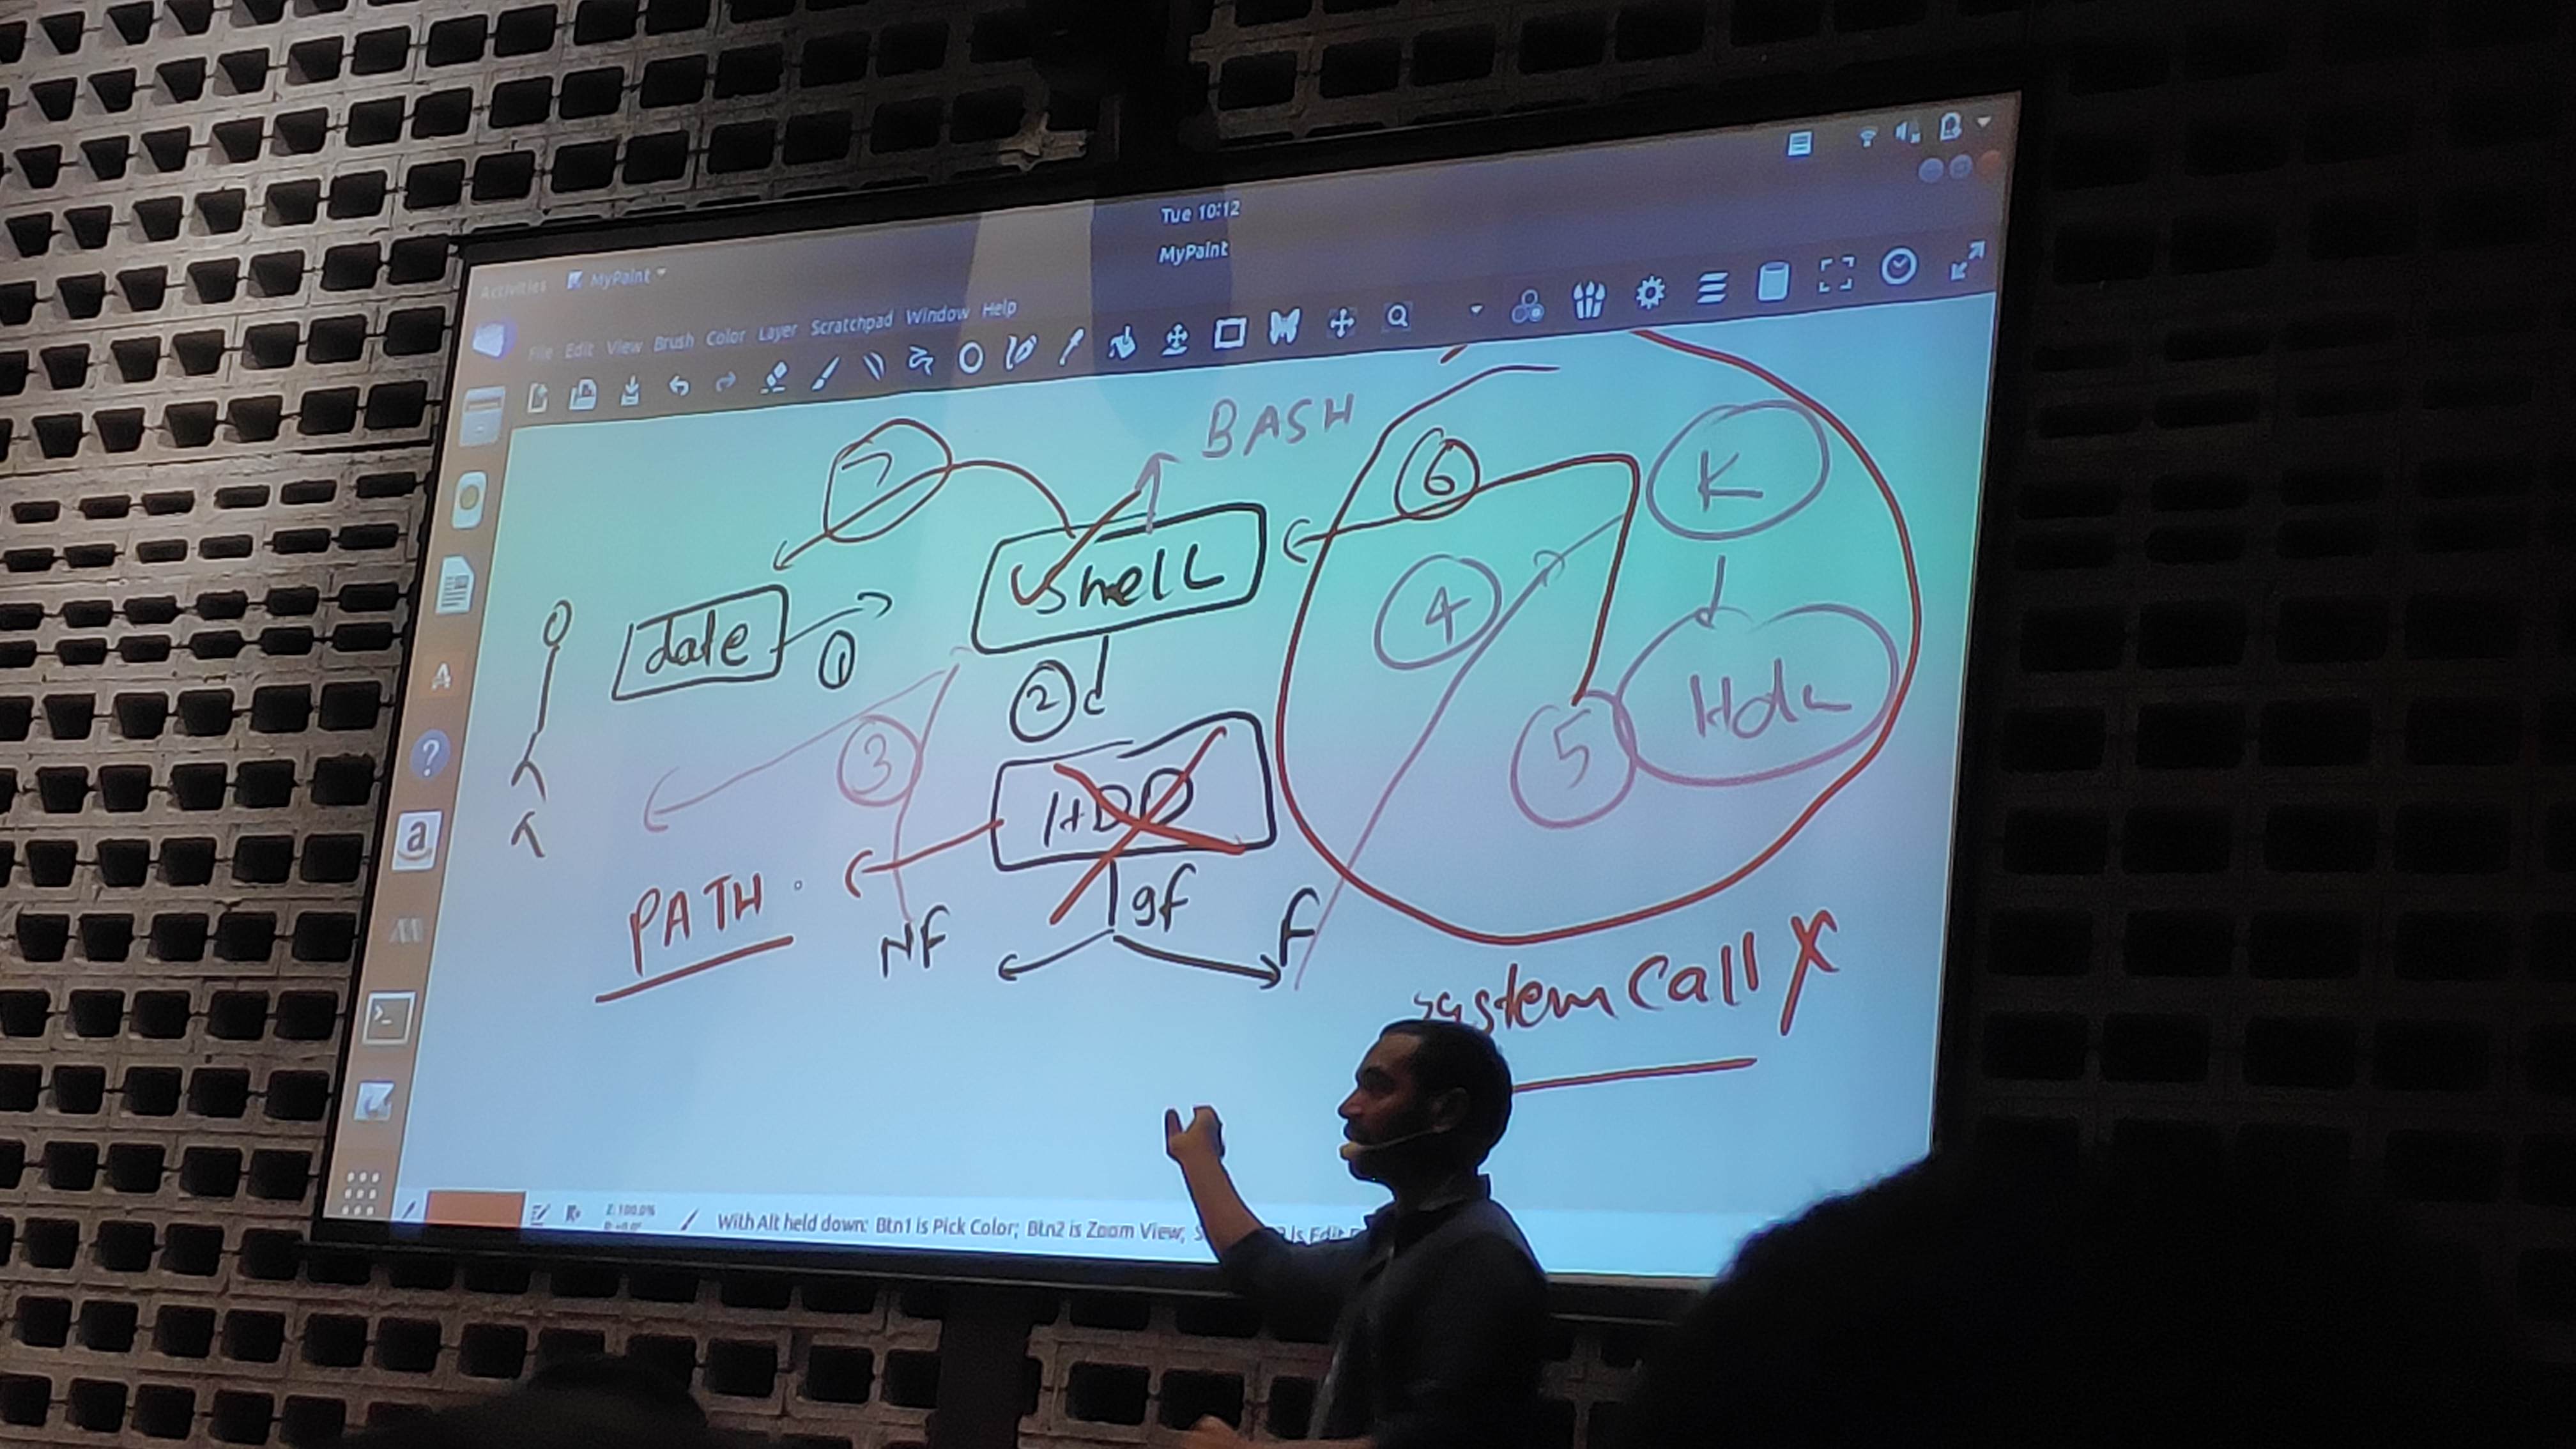 Tue 10:12
MyPaint
Activities MyPaint
File Edit View Brush Color Layer Scratchpad Window Help
BASH
7
6
K
Shell
4
date
1
2
3
5
HDD
PATH
NF
gf
F
system call X
With Alt held down: Btn1 is Pick Color; Btn2 is Zoom View,